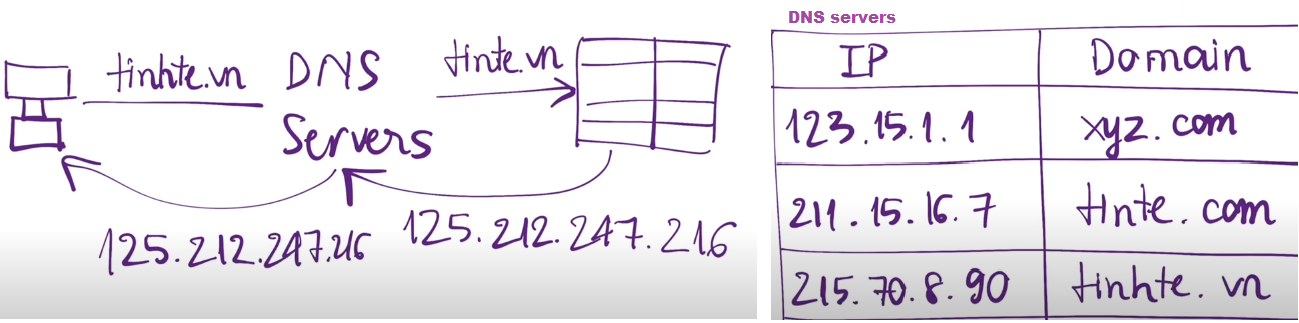 tinhte.vn
DNS
Servers
tinte.vn
125.212.247.216
125.212.247.216
DNS servers
IP Domain
123.15.1.1 xyz.com
211.15.16.7 tinte.com
215.70.8.90 tinhte.vn